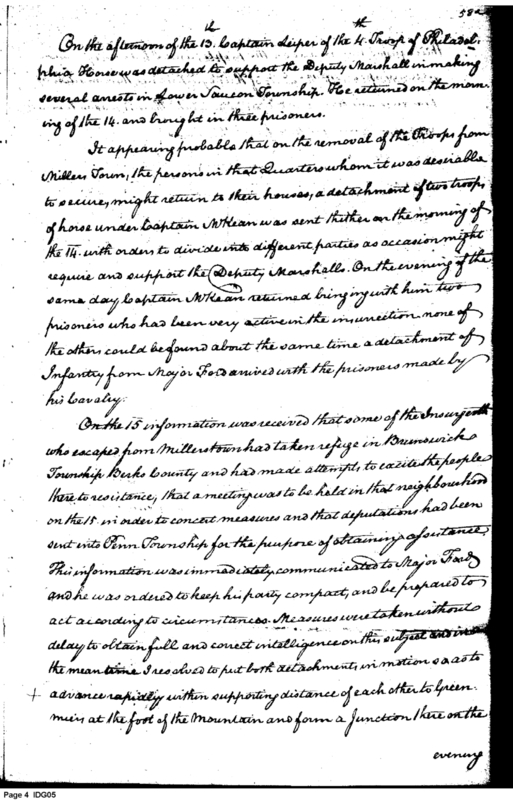 582
On the afternoon of the 13.th Captain Leiper of the 4.th Troop of Philadel-
phia Horse was detached to support the Deputy Marshall in making
several arrests in Lower Saucon Township. He returned on the morn-
ing of the 14. and brought in three prisoners.
It appearing probable that on the removal of the Troops from
Millers Town, the persons in that Quarters whom it was desirable
to secure, might return to their houses, a detachment of two troops
of horse under Captain McKean was sent thither on the morning of
the 14. with orders to divide into different parties as occasion might
require and support the Deputy Marshalls. On the evening of the
same day Captain McKean returned bringing with him two
prisoners who had been very active in the insurrection none of
the others could be found about the same time a detachment of
Infantry from Major Ford arrived with the prisoners made by
his Cavaley.
On the 15 information was received that some of the Insurgents
who escaped from Millerstown had taken refuge in Brunswick
Township Berks County and had made attempts to excite the people
there to resistance, that a meeting was to be held in that neighbourhood
on the 15 in order to concert measures and that deputations had been
sent into Penn Township for the purpose of obtaining assistance.
This information was immediately communicated to Major Ford
and he was ordered to keep his party compact, and be prepared to
act according to circumstances. Measures were taken without
delay to obtain full and correct intelligence on this subject and in
the mean time I resolved to put both detachments in motion so as to
+ advance rapidly within supporting distance of each other to Green-
meirs at the foot of the Mountain and form a Junction there on the
evening
Page 4 IDG05